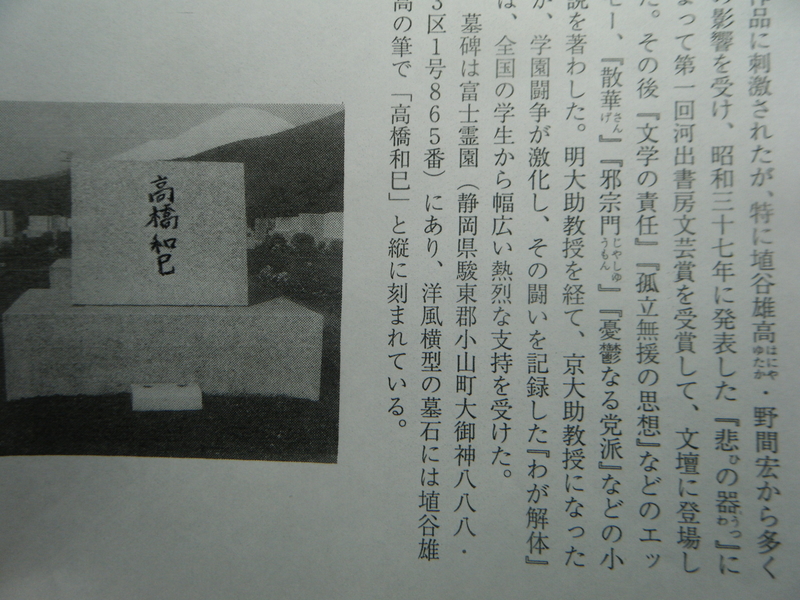 作品に刺激されたが、特に埴谷雄高・野間宏から多く
はにや
ゆたか
の影響を受け、昭和三十七年に発表した『悲の器』に
ひ
うつわ
よって第一回河出書房文芸賞を受賞して、文壇に登場し
た。その後『文学の責任』『孤立無援の思想』などのエッ
セー、『散華』『邪宗門』『憂鬱なる党派』などの小
さんげ
じやしゆうもん
説を著わした。明大助教授を経て、京大助教授になった
が、学園闘争が激化し、その闘いを記録した『わが解体』
は、全国の学生から幅広い熱烈な支持を受けた。
墓碑は富士霊園（静岡県駿東郡小山町大御神八八八・
3区1号865番）にあり、洋風横型の墓石には埴谷雄
高の筆で「高橋和巳」と縦に刻まれている。
高橋和巳